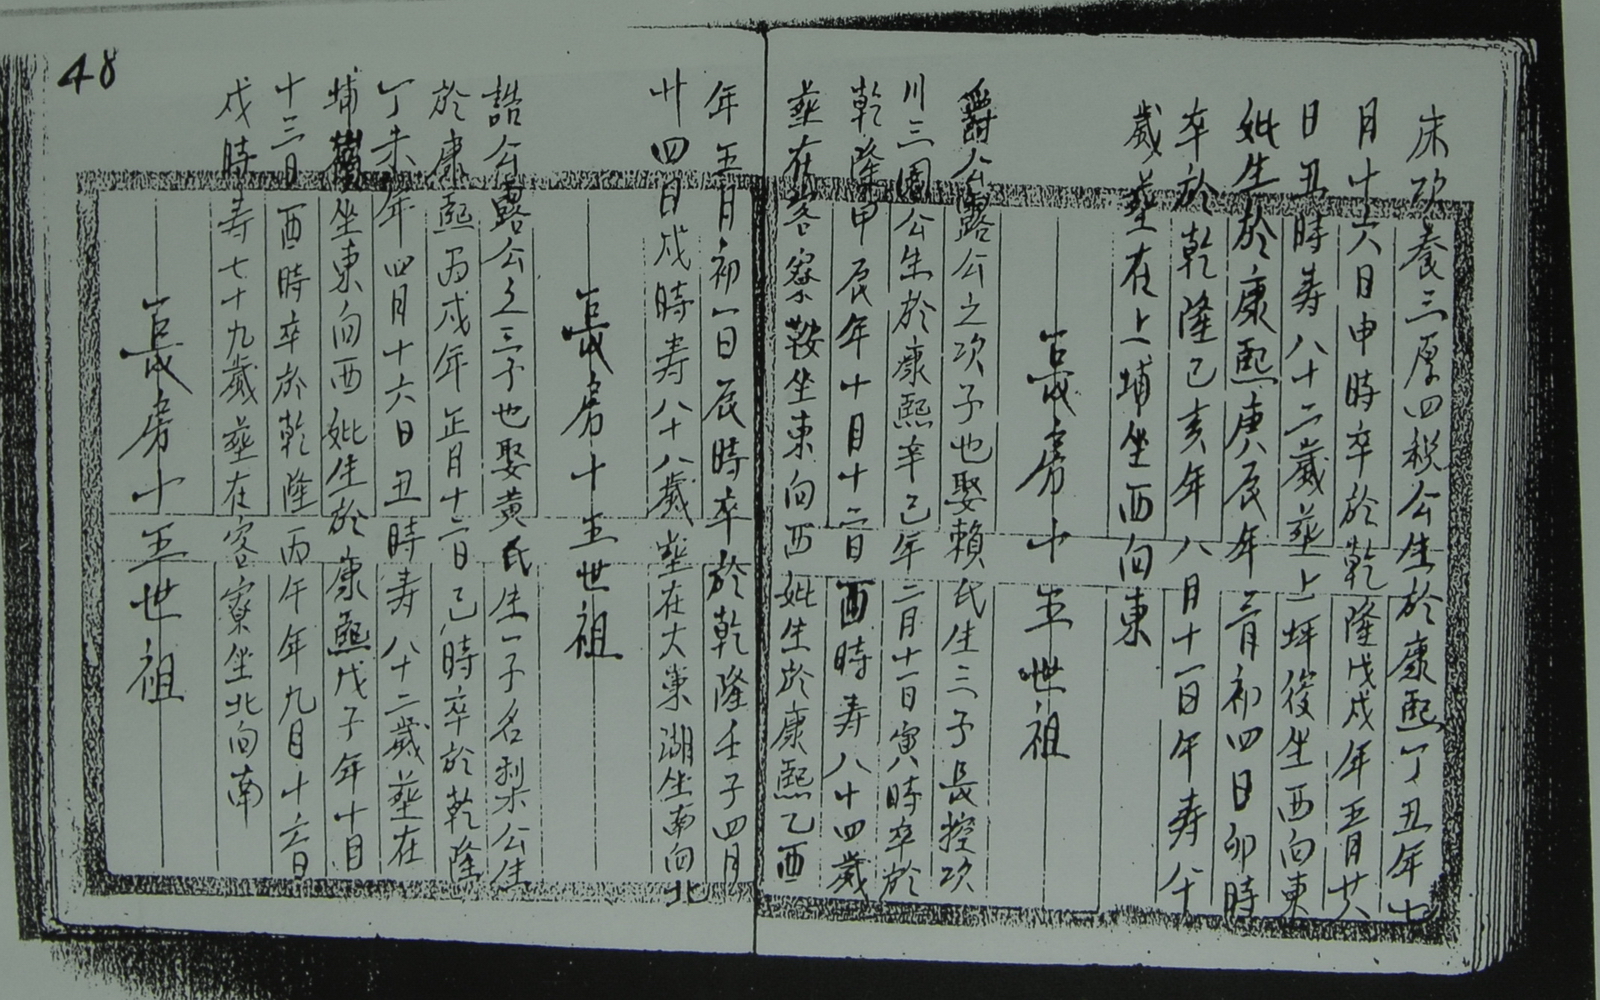 48
床次養三厚四税公生於康熙丁丑年七
月十六日申時卒於乾隆戊戌年五月廿八
日丑時寿八十二歲塟上坪後坐西向東
妣生於康熙庚辰年二月初四日卯時
卒於乾隆己亥年八月十一日午寿八十
歲塟在上埔坐西向東
長房十五世祖
爵公露公之次子也娶賴氏生三子長控次
川三園公生於康熙辛巳年二月十一日寅時卒於
乾隆甲辰年十月十二日酉時寿八十四歲
塟在客寮鞍坐東向西妣生於康熙乙酉
年五月初一日辰時卒於乾隆壬子四月
廿四日戌時寿八十八歲塟在大東湖坐南向北
長房十五世祖
誥公露公之三子也娶黄氏生一子名梨公生
於康熙丙戌年正月十二日己時卒於乾隆
丁未年四月十六日丑時寿八十二歲塟在
埔坐東向西妣生於康熙戊子年十月
十三日酉時卒於乾隆丙午年九月十六日
戌時寿七十九歲塟在客寮坐北向南
長房十五世祖